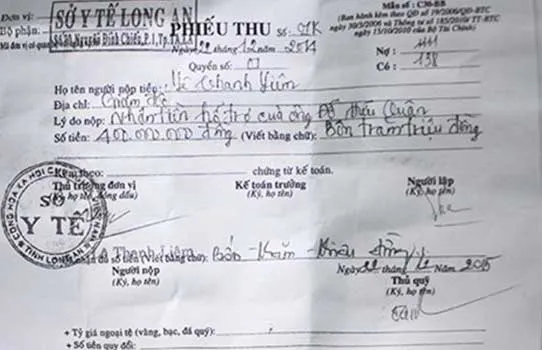 Đơn vị: SỞ Y TẾ LONG AN
Bộ phận: Số 70 Nguyễn Đình Chiểu, P.1, Tp.Tân An
Mã đơn vị có quan hệ
PHIẾU THU Số: 01K
Ngày 22 tháng 12 năm 2014
Quyển số: 01
Mẫu số: C30-BB
(Ban hành kèm theo QĐ số 19/2006/QĐ-BTC
ngày 30/3/2006 và Thông tư số 185/2010/TT-BTC
ngày 15/10/2010 của Bộ Tài Chính)
Nợ: 1111
Có: 138
Họ tên người nộp tiền: Lê Thanh Liêm
Địa chỉ: Giám đốc
Lý do nộp: Nhận tiền hỗ trợ của ông Đỗ Hữu Quận
Số tiền: 400.000.000 đồng (Viết bằng chữ): Bốn trăm triệu đồng
Kèm theo: chứng từ kế toán.
Thủ trưởng đơn vị
(Ký, họ tên, đóng dấu)
Kế toán trưởng
(Ký, họ tên)
Người lập
(Ký, họ tên)
CỘNG HÒA XÃ HỘI CHỦ NGHĨA VIỆT NAM
SỞ
Y TẾ
TỈNH LONG AN
Thanh Liêm
đủ số tiền (Viết bằng chữ): Bốn trăm triệu đồng
Ngày 22 tháng 12 năm 2015
Người nộp
(Ký, họ tên)
Thủ quỹ
(Ký, họ tên)
+ Tỷ giá ngoại tệ (vàng, bạc, đá quý):
+ Số tiền quy đổi: